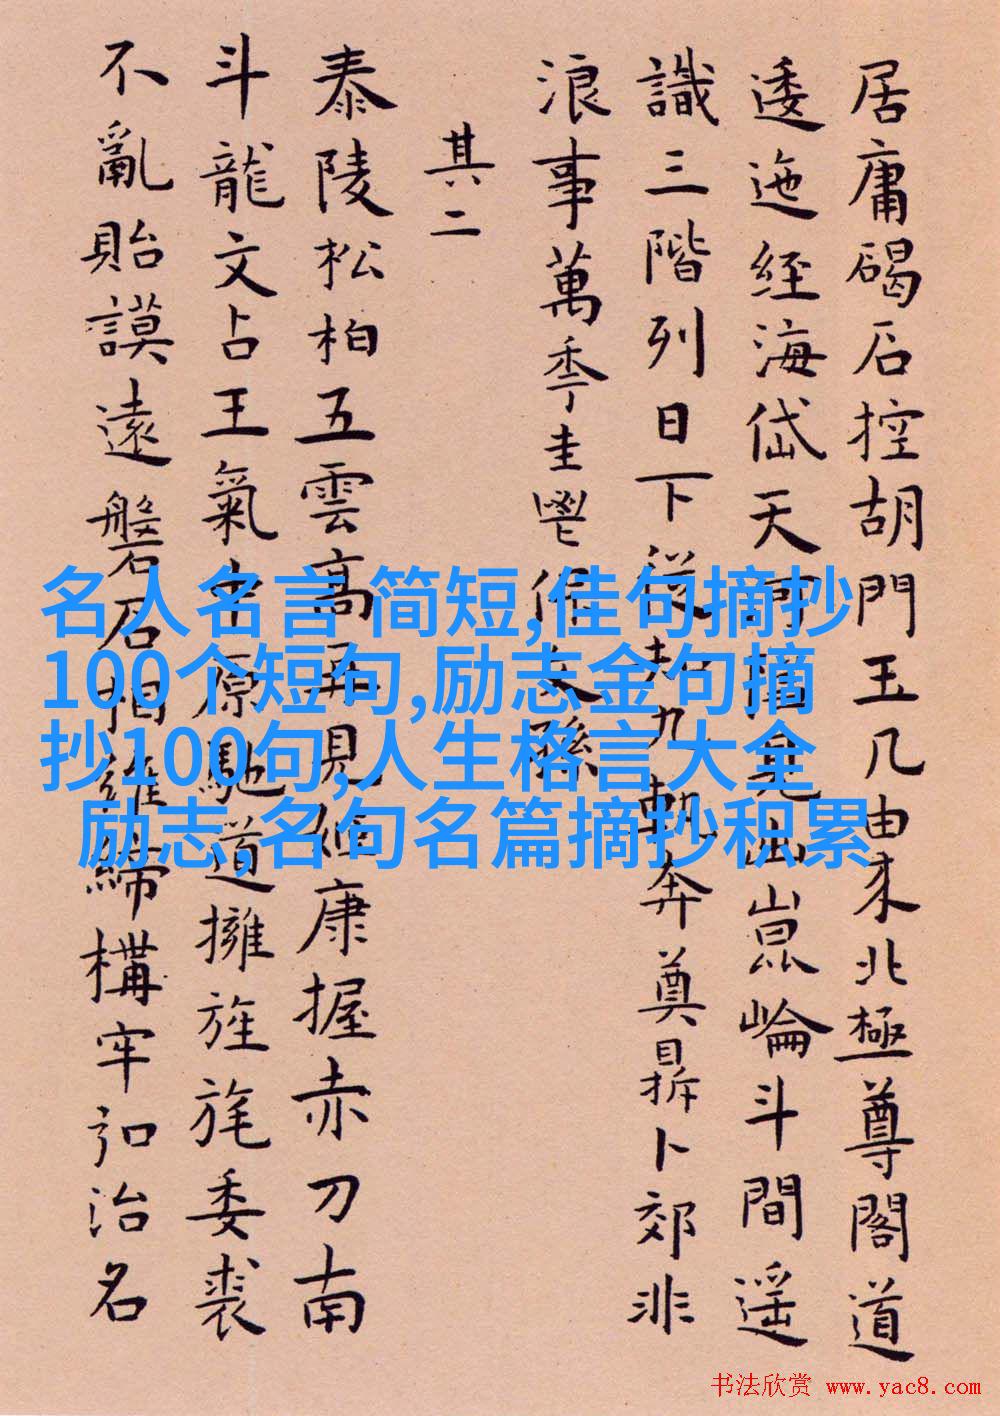 居庸碣石控胡門玉几由来北極尊閣道
逶迤經海岱天河搖曳出崑崙斗間遥
識三階列日下從知九軌奔奠鼎卜郊非
浪事萬秊圭鬯孫
其二
泰陵松柏五雲高再見康握赤刀南
斗龍文占王氣中原馳道擁旌旄委裘
不亂貽謨遠磐石相維締構牢治名
名人名言 简短,佳句摘抄
100个短句,励志金句摘
抄100句,人生格言大全
励志,名句名篇摘抄积累
书法欣赏 www.yac8.com